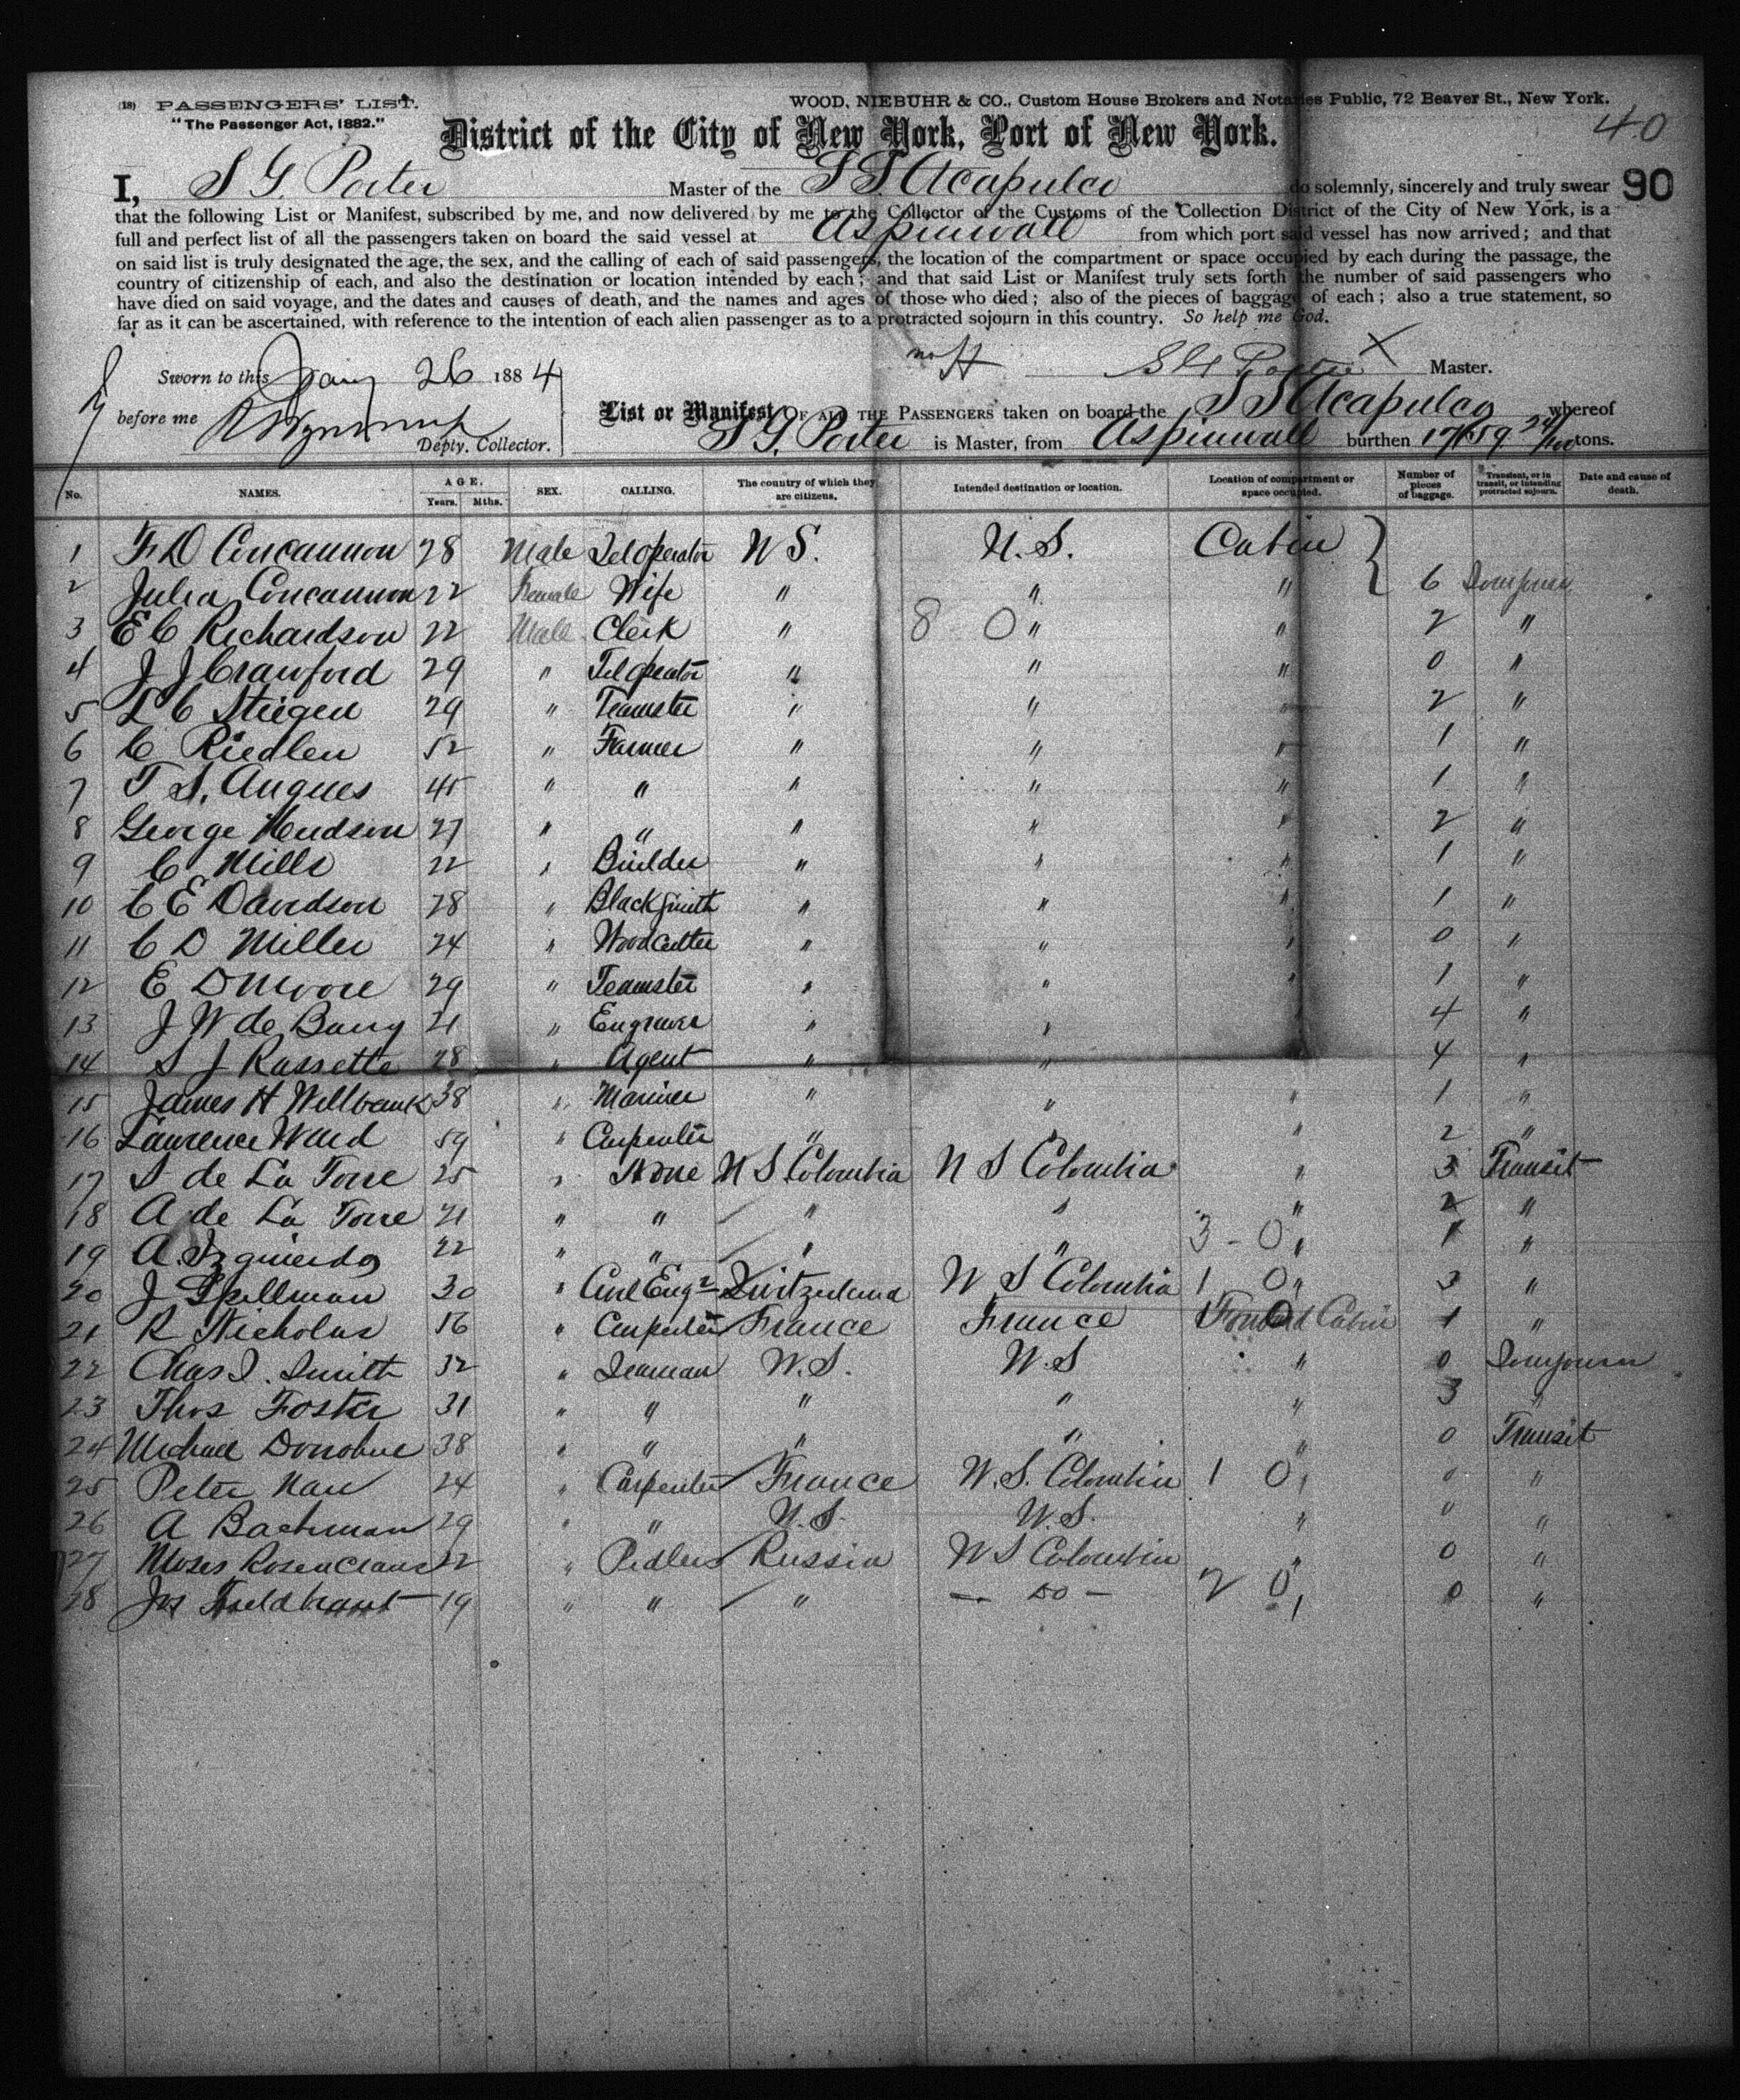 (18) PASSENGERS' LIST.
WOOD, NIEBUHR & CO., Custom House Brokers and Notaries Public, 72 Beaver St., New York.
"The Passenger Act, 1882."
40
District of the City of New York, Port of New York.
I, S G Porter Master of the S S Acapulco do solemnly, sincerely and truly swear 90
that the following List or Manifest, subscribed by me, and now delivered by me to the Collector of the Customs of the Collection District of the City of New York, is a
full and perfect list of all the passengers taken on board the said vessel at Aspinwall from which port said vessel has now arrived; and that
on said list is truly designated the age, the sex, and the calling of each of said passengers, the location of the compartment or space occupied by each during the passage, the
country of citizenship of each, and also the destination or location intended by each; and that said List or Manifest truly sets forth the number of said passengers who
have died on said voyage, and the dates and causes of death, and the names and ages of those who died; also of the pieces of baggage of each; also a true statement, so
far as it can be ascertained, with reference to the intention of each alien passenger as to a protracted sojourn in this country. So help me God.
Sworn to this Jany 26 1884 S G Porter X Master.
before me
Depty. Collector.
List or Manifest OF ALL THE PASSENGERS taken on board the S S Acapulco whereof
S G. Porter is Master, from Aspinwall burthen tons.
No. NAMES. AGE. Years. Mths. SEX. CALLING. The country of which they are citizens. Intended destination or location. Location of compartment or space occupied. Number of pieces of baggage. Transient, or in transit, or intending protracted sojourn. Date and cause of death.
1 F D Concannon 28 Male Tel operator U S. U. S. Cabin }
2 Julia Concannon 22 Female Wife " " " 6
3 E C Richardson 22 Male Clerk " 8 0 " " 2 "
4 J J Crawford 29 " Tel operator " " " 0 "
5 L C Stiegen 29 " Teamster " " " 2 "
6 C Riedlen 52 " Farmer " " " 1 "
7 T S. Angues 45 " " " " " 1 "
8 George Hudson 27 " " " " " 2 "
9 C Mills 22 " Builder " " " 1 "
10 C E Davidson 28 " Blacksmith " " " 1 "
11 C D Miller 24 " Woodcutter " " " 0 "
12 E D Moore 29 " Teamster " " " 1 "
13 J W de Barry 21 " Engraver " " " 4 "
14 S J Rassette 28 " Agent " " 4 "
15 James H Wellbank 38 " Mariner " " " 1 "
16 Lawrence Ward 59 " Carpenter " " " 2 "
17 S de La Torre 25 " None U S Colombia U S Colombia " 3 Transit
18 A de La Torre 21 " " " " " 2 "
19 A. Izquierdo 22 " " " " 3 - 0 " 1 "
20 J Spillman 30 " Civil Engr Switzerland U S Colombia 1 0 " 3 "
21 R Nicholas 36 " Carpenter France France 1 0 Forward Cabin 1 "
22 Chas I. Smith 32 " Seaman U. S. U. S " 0
23 Thos Foster 31 " " " " " 3 "
24 Michael Donohue 38 " " " " " 0 Transit
25 Peter Nau 24 " Carpenter France U. S. Colombia 1 0 " " "
26 A Bachman 29 " " U. S. U. S. " " "
27 Moses Rosencrans 22 " Pedlers Russia U S Colombia " 0 "
28 Jos 19 " " " — do — 2 0 " 0 "